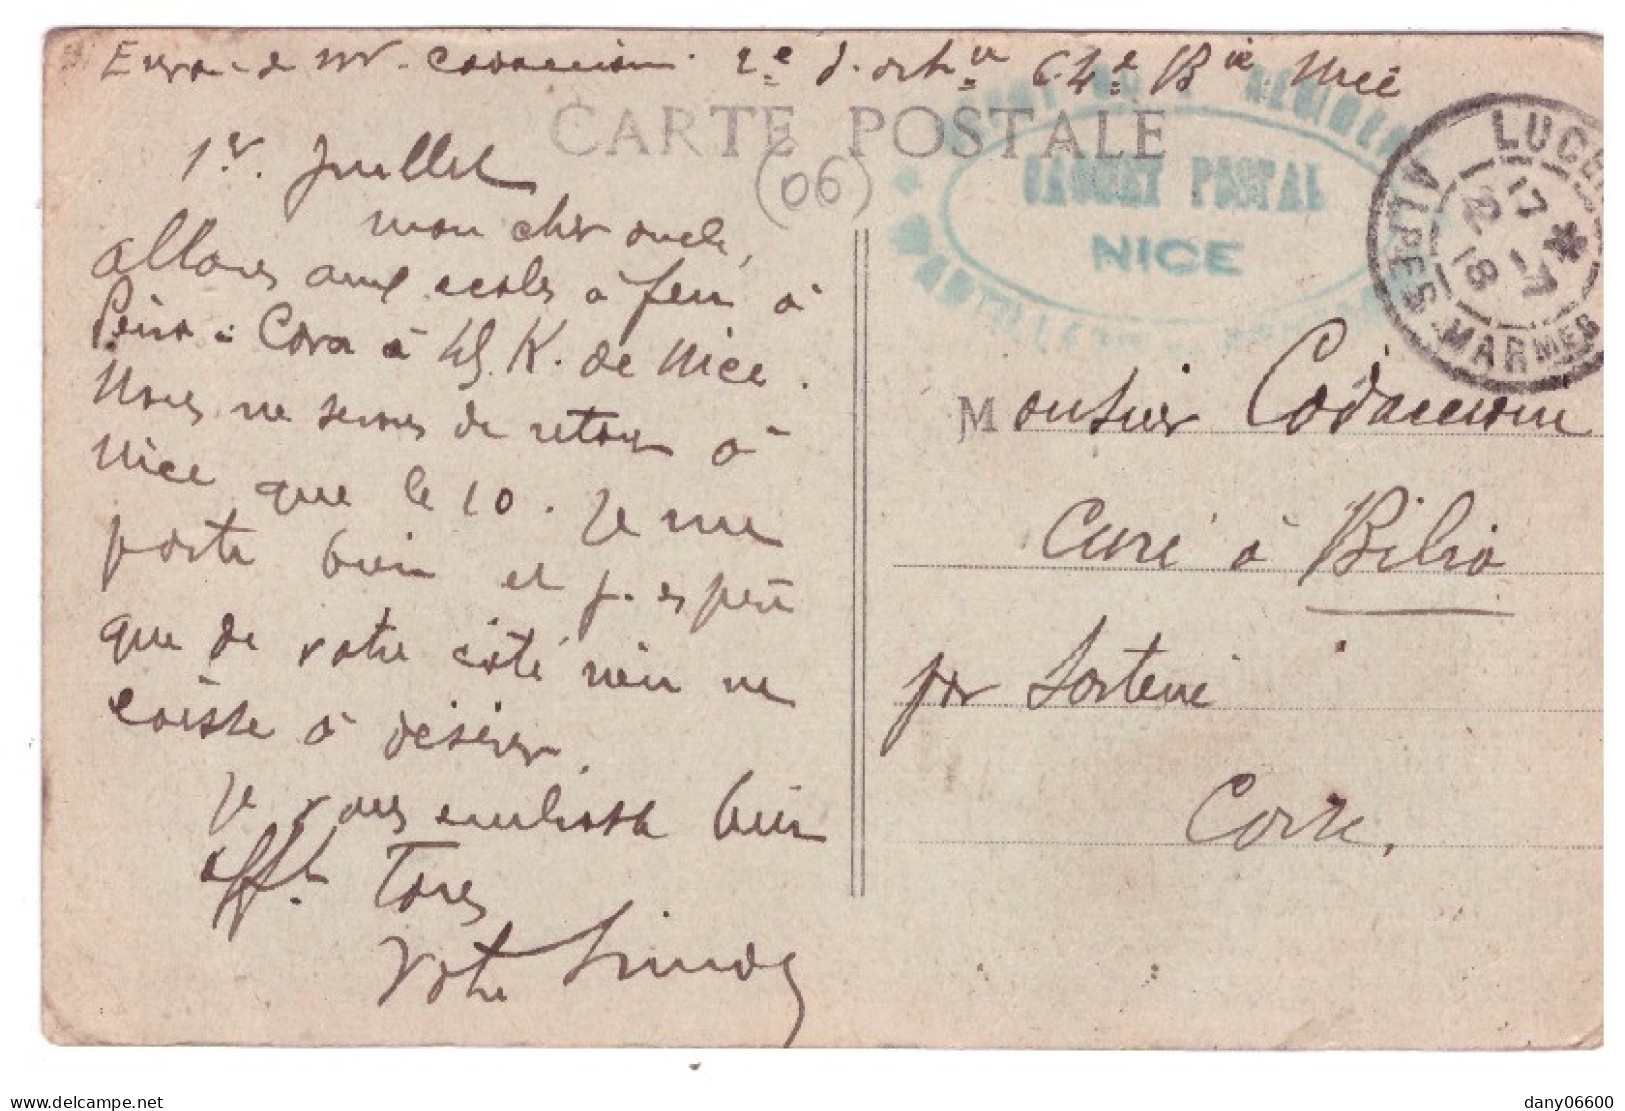 Expr. de Mr. Codaccioni. 2e d'art 64e Bie Nice
CARTE POSTALE
(06)
1er Juillet
Mon cher oncle,
allons aux ecoles à feu à
Peïra-Cava à 45 K. de Nice.
Nous ne serons de retour à
Nice que le 10. Je me
porte bien et j'espère
que de votre côté rien ne
laisse à désirer.
Je vous embrasse bien
afft. Tous
Votre
CACHET POSTAL
NICE
LUCE
ALPES MARMES
17
2-7
18
Monsieur Codaccioni
Curé à Bilia
par Sartène
Corse,
Delcampe.net
dany06600